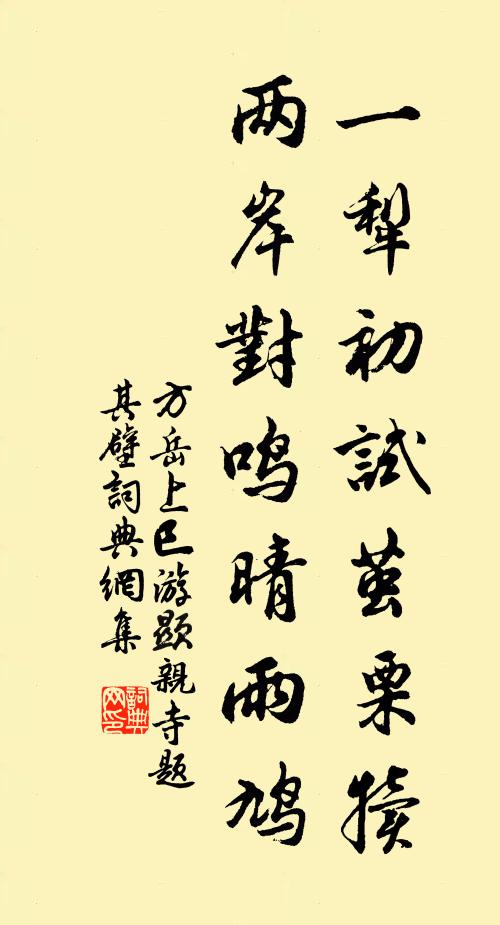 一犁初試茧栗犊
两岸對鸣晴雨鸠
方岳上巳游顯親寺題
其壁詞典網集
詞典网印